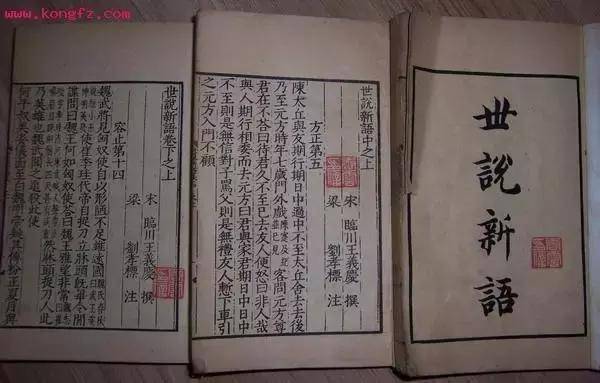 www.kongfz.com
世說新語
世說新語中之上
方正第五
宋 臨川王義慶 撰
梁 劉孝標 注
陳太丘與友期行期日中過中不至太丘舍去去後
乃至元方時年七歲門外戲陳寔及紀並已見客問元方尊
君在不荅曰待君久不至已去友人便怒曰非人哉
與人期行相委而去元方曰君與家君期日中日中
不至則是無信對子罵父則是無禮友人慙下車引
之元方入門不顧
世說新語卷下之上
容止第十四
宋 臨川王義慶 撰
梁 劉孝標 注
魏武將見匈奴使自以形陋不足雄遠國魏氏春秋曰武王姿
貌短小而神明英發使崔季珪代帝自捉刀立牀頭旣畢令間
諜問曰魏王何如匈奴使荅曰魏王雅望非常魏志
然牀頭捉刀人此
乃英雄也魏武聞之追殺此使
何平叔美姿儀面至白魏明帝疑其傅粉正夏月與